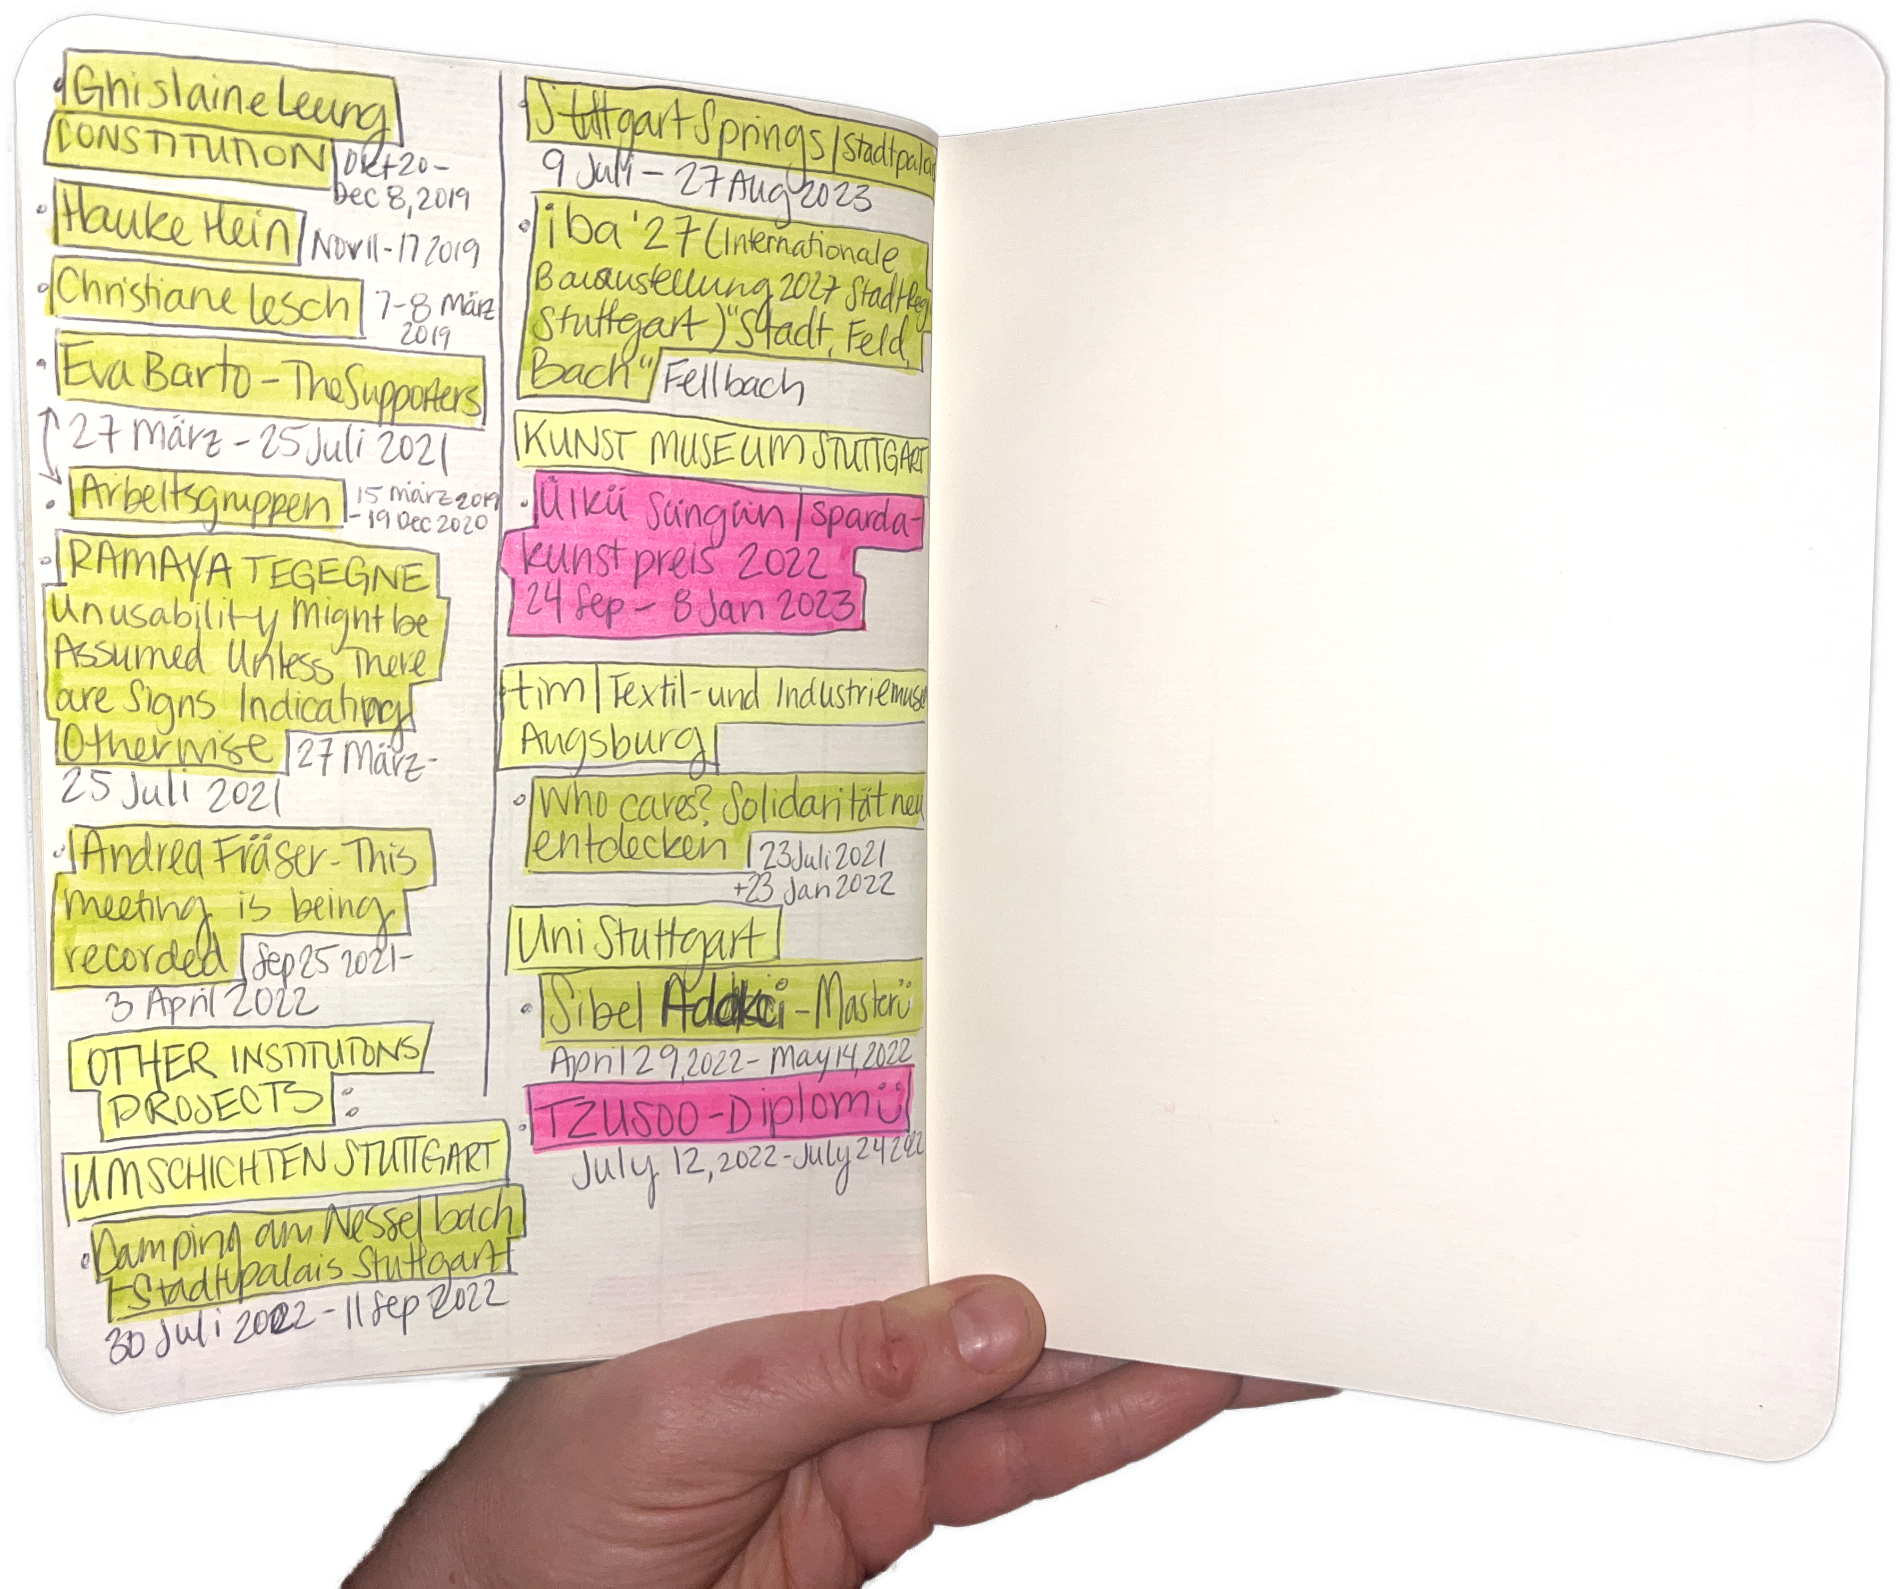 Ghislaine Leung
CONSTITUTION
Okt 20 -
Dec 8, 2019
Hauke Hein
Nov 11-17 2019
Christiane Lesch
7-8 März
2019
Eva Barto - The Supporters
27 März - 25 Juli 2021
Arbeitsgruppen
15 märz 2019
- 19 Dec 2020
RAMAYA TEGEGNE
Unusability Might be
Assumed Unless There
are Signs Indicating
Otherwise
27 März-
25 Juli 2021
Andrea Fräser - This
meeting is being
recorded
Sep 25 2021-
3 April 2022
OTHER INSTITUTONS
PROJECTS:
UMSCHICHTEN STUTTGART
Camping am Nesselbach
- Stadtpalais Stuttgart
30 Juli 2022 - 11 Sep 2022
Stuttgart Springs | Stadtpalais
9 Juli - 27 Aug 2023
iba '27 (Internationale
Bauaustellung 2027 StadtReg
Stuttgart) "Stadt, Feld,
Bach" Fellbach
KUNST MUSEUM STUTTGART
Ülkü Süngün | sparda-
kunstpreis 2022
24 Sep - 8 Jan 2023
tim | Textil- und Industriemuse
Augsburg
Who cares? Solidarität neu
entdecken
23 Juli 2021
+23 Jan 2022
Uni Stuttgart
Sibel - Masterü
April 29, 2022 - May 14, 2022
TZUSOO - Diplomü
July 12, 2022 - July 24 2022